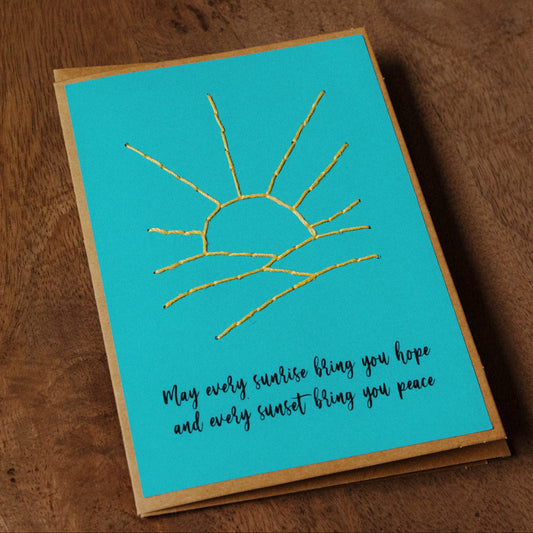 May every sunrise bring you hope
and every sunset bring you peace